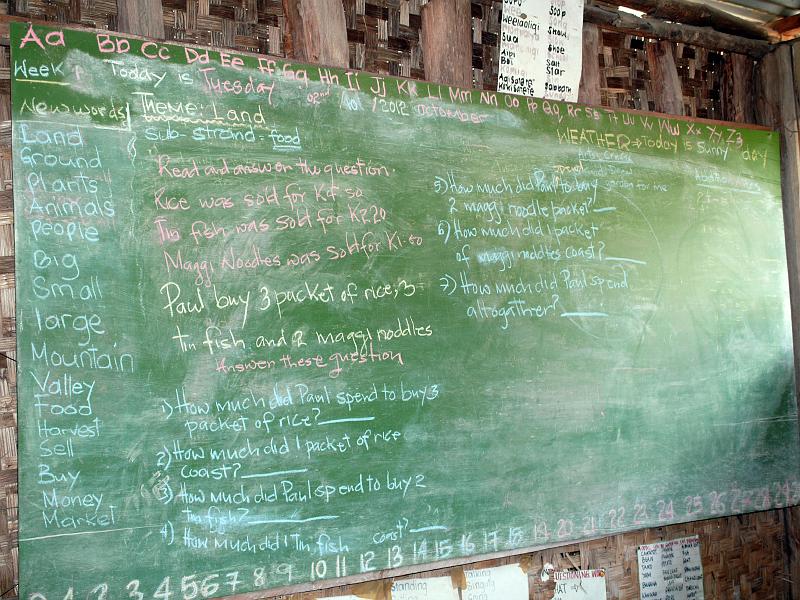 Aa Bb Cc Dd Ee Ff Gg Hh Ii Jj Kk Ll Mm Nn Oo Pp Qq Rr Ss Tt Uu Vv Ww Xx Yy Zz
Week 1 Today is Tuesday 02nd /10 /2012 octomber
New words
Theme: Land
Sub-strand = food
WEATHER → Today is Sunny day
Land
Ground
Plants
Animals
People
Big
Small
large
Mountain
Valley
Food
Harvest
Sell
Buy
Money
Market
Read and answer the question.
Rice was sold for K4.50
Tin fish was sold for K2.20
Maggi Noodles was sold for K1.50
Paul buy 3 packet of rice, 3
tin fish and 2 maggi noddles
Answer these question
1) How much did Paul spend to buy 3
packet of rice? ____
2) How much did 1 packet of rice
coast? ____
3) How much did Paul spend to buy 2
tin fish? ____
4) How much did 1 Tin fish coast? ____
5) How much did Paul to buy
2 maggi noodle packet? __
6) How much did 1 packet
of maggi noddles coast? ____
7) How much did Paul spend
altogather? ____
1 2 3 4 5 6 7 8 9 10 11 12 13 14 15 16 17 18 19 20 21 22 23 24 25 26 27 28 29
Soap
Sua
Shoe
Salt
Star
standing
talking
Singing
Song